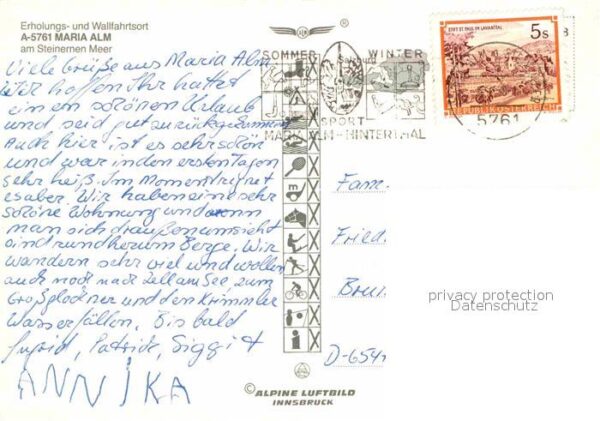 Erholungs- und Wallfahrtsort
A-5761 MARIA ALM
am Steinernen Meer
Viele Grüße aus Maria Alm
Wir hoffen Ihr hattet
einen schönen Urlaub
und seid gut zurückgekommen
Auch hier ist es sehr schön
und war in den ersten Tagen
sehr heiß. Im Moment regnet
es aber. Wir haben eine sehr
schöne Wohnung und wenn
man sich draußen umsieht
sind rundherum Berge. Wir
wandern sehr viel und wollen
auch noch nach Zell am See, zum
Großglockner und den Krimmler
Wasserfällen. Bis bald
Ingrid, Patrick, Siggi +
ANNIKA
SOMMER
WINTER
SPORT
MARIA ALM-HINTERTHAL
STIFT ST. PAUL IM LAVANTTAL
5s
REPUBLIK ÖSTERREICH
5761
8
Fam.
Fried.
D-654
privacy protection
Datenschutz
© ALPINE LUFTBILD
INNSBRUCK